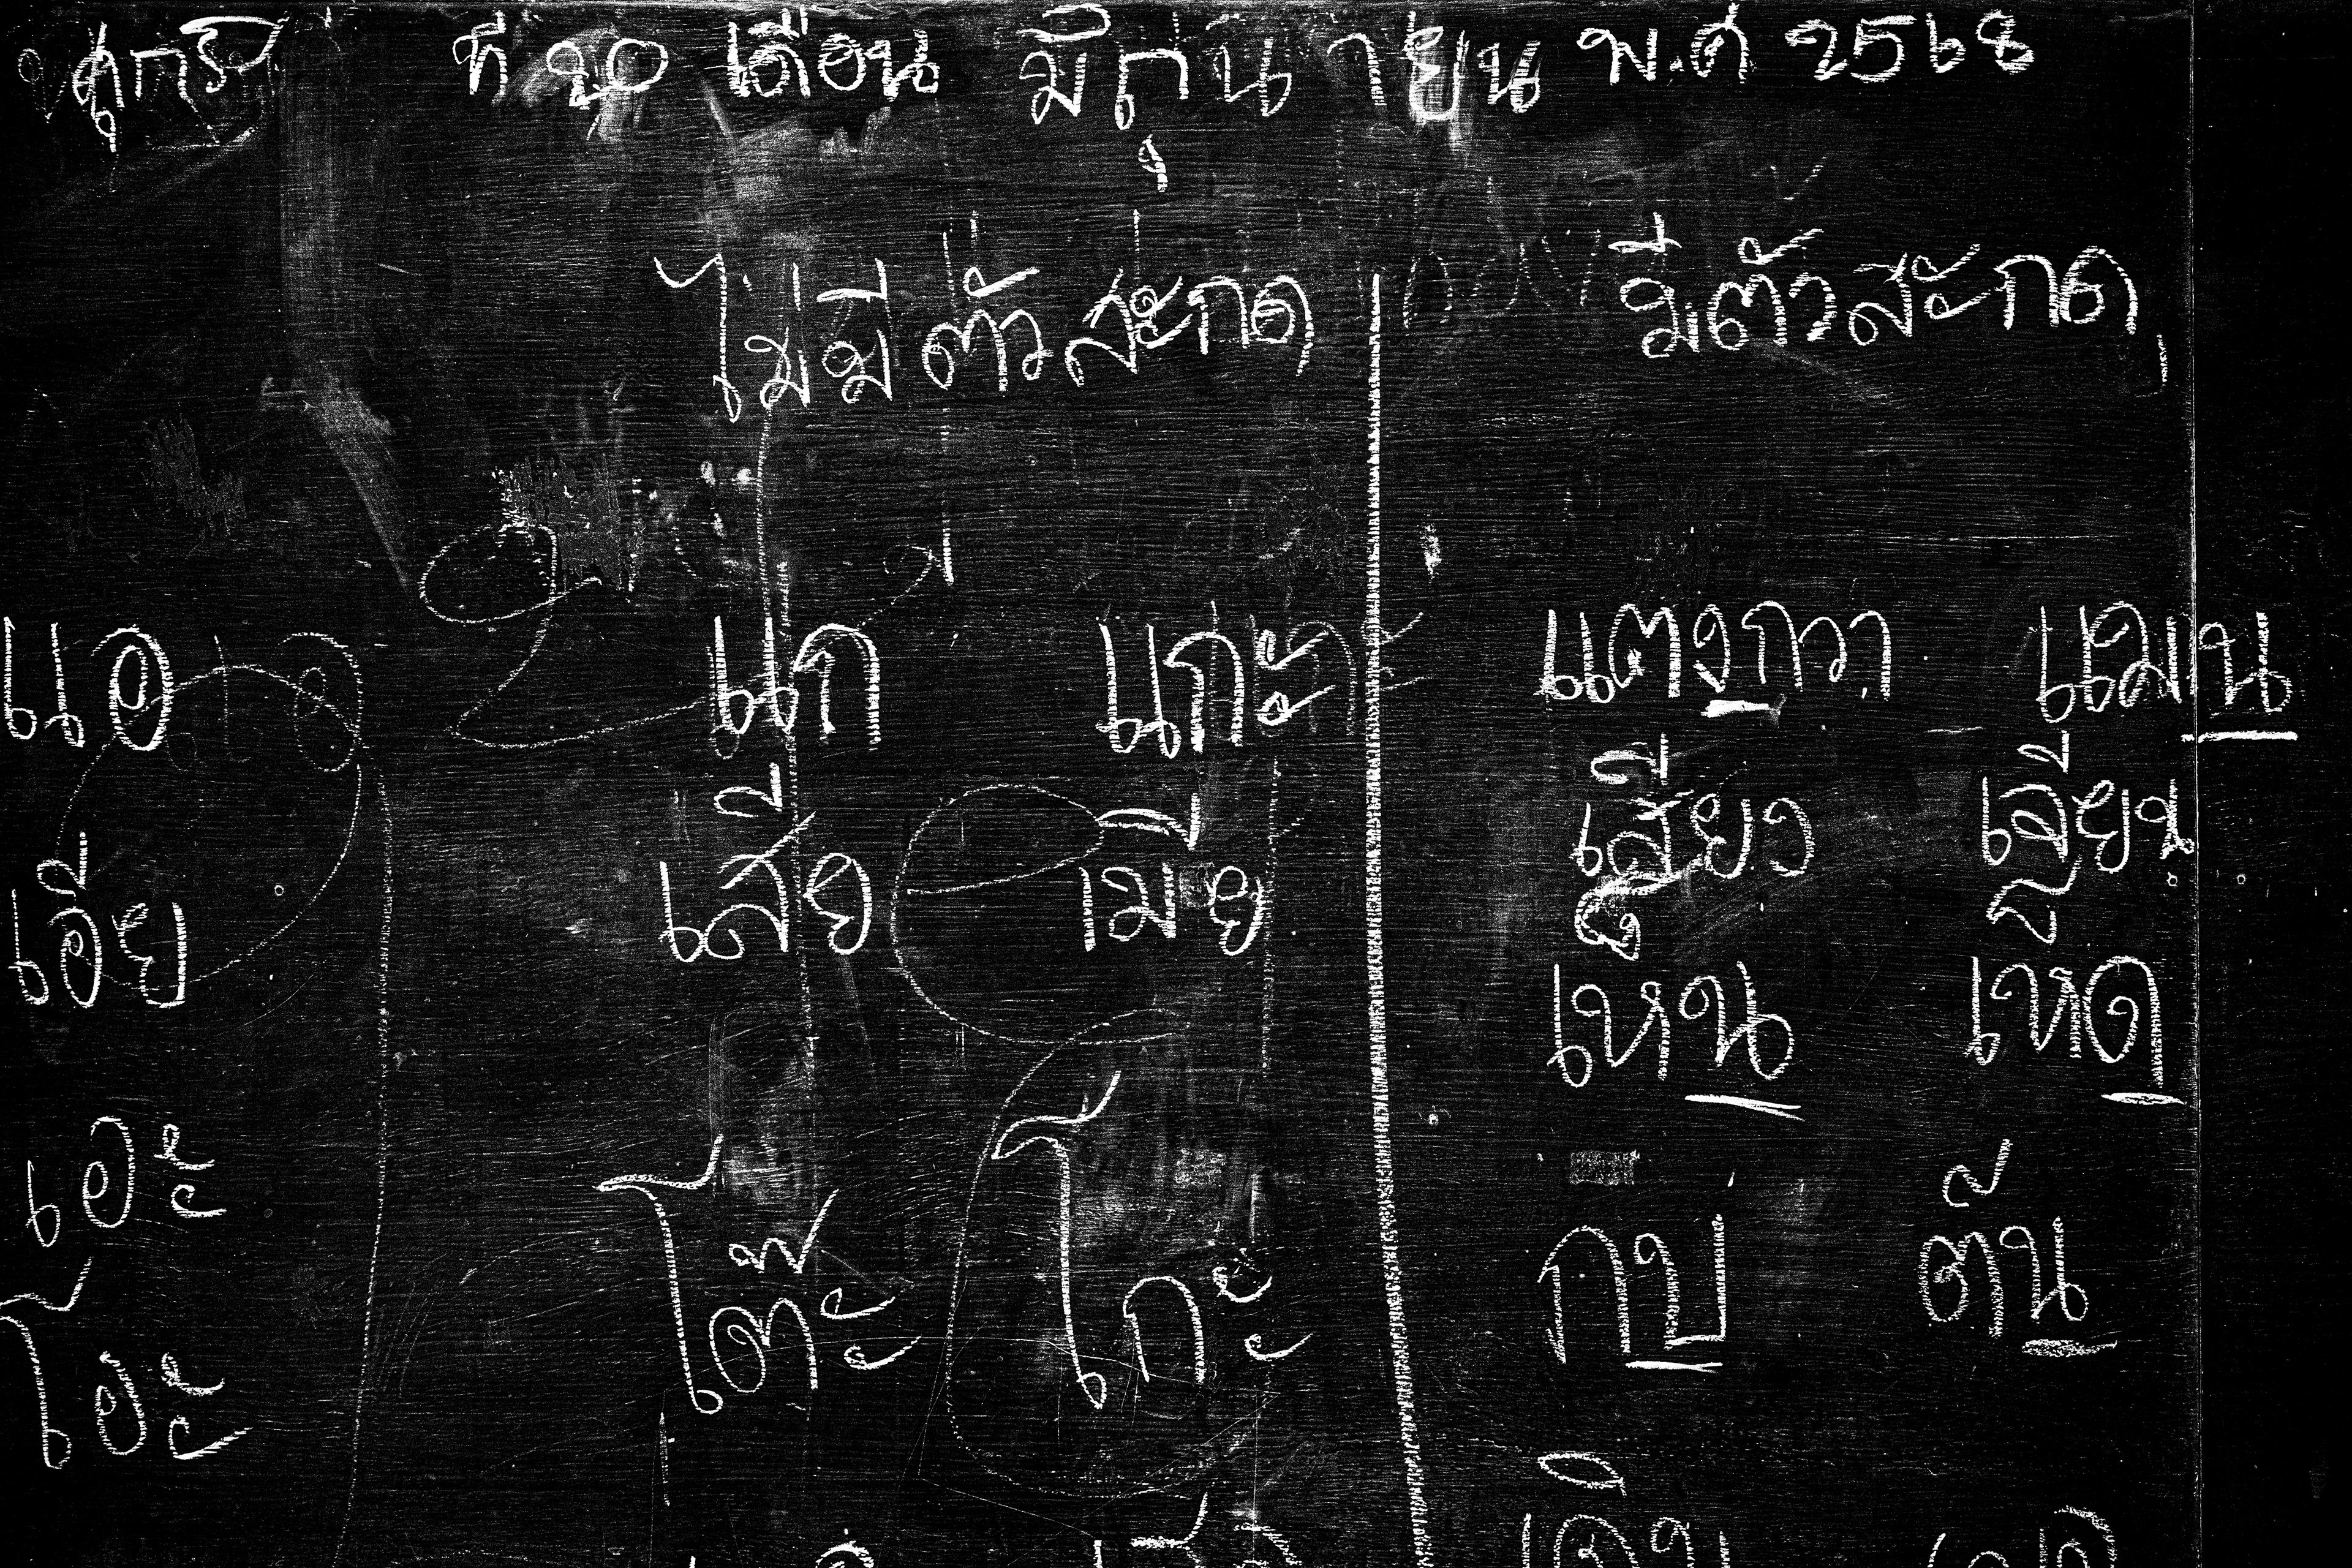 ศุกร์ ที่ ๒๐ เดือน มิถุนายน พ.ศ 2568
ไม่มีตัวสะกด มีตัวสะกด
แอ แก แกะ แตงกวา แมน
เอีย เสีย เมีย เสี่ยว เอียน
เอะ เห็น เห็ด
โอะ โต๊ะ โกะ กบ ต้น